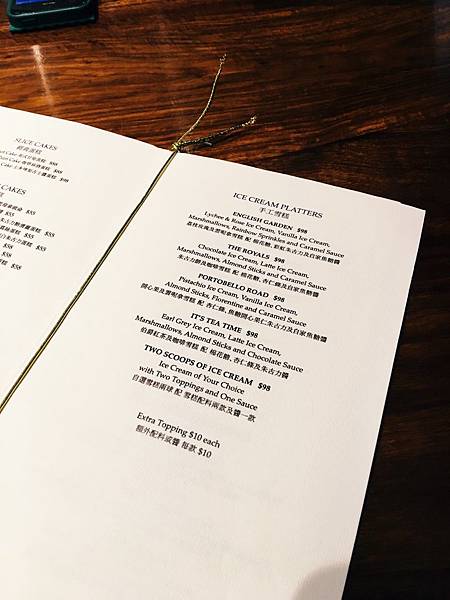 SLICE CAKES
Cake $55
Cake $55
CAKES
$55
$55
ICE CREAM PLATTERS
手工雪糕
ENGLISH GARDEN $98
Lychee & Rose Ice Cream, Vanilla Ice Cream,
Marshmallows, Rainbow Sprinkles and Caramel Sauce
荔枝玫瑰及雲呢拿雪糕 配 棉花糖、彩虹朱古力及自家焦糖醬
THE ROYALS $98
Chocolate Ice Cream, Latte Ice Cream,
Marshmallows, Almond Sticks and Caramel Sauce
朱古力及咖啡雪糕 配 棉花糖、杏仁條及自家焦糖醬
PORTOBELLO ROAD $98
Pistachio Ice Cream, Vanilla Ice Cream,
Almond Sticks, Florentine and Caramel Sauce
開心果及雲呢拿雪糕 配 杏仁條、焦糖開心果仁朱古力及自家焦糖醬
IT'S TEA TIME $98
Earl Grey Ice Cream, Latte Ice Cream,
Marshmallows, Almond Sticks and Chocolate Sauce
伯爵紅茶及咖啡雪糕 配 棉花糖、杏仁條及朱古力醬
TWO SCOOPS OF ICE CREAM $98
Ice Cream of Your Choice
with Two Toppings and One Sauce
自選雪糕兩球 配 雪糕配料兩款及醬一款
Extra Topping $10 each
額外配料或醬 每款 $10